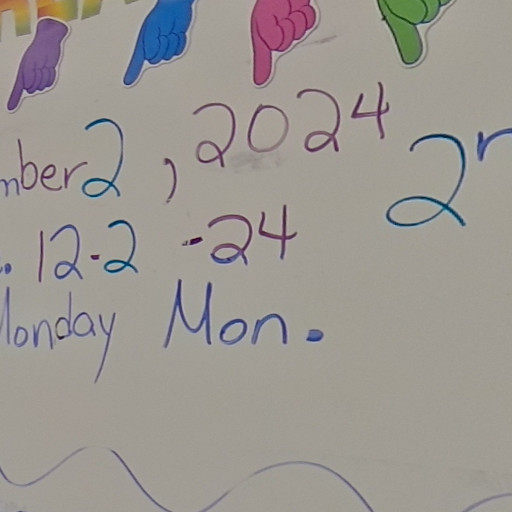 mber 2, 2024
2n
. 12-2-24
Monday Mon.